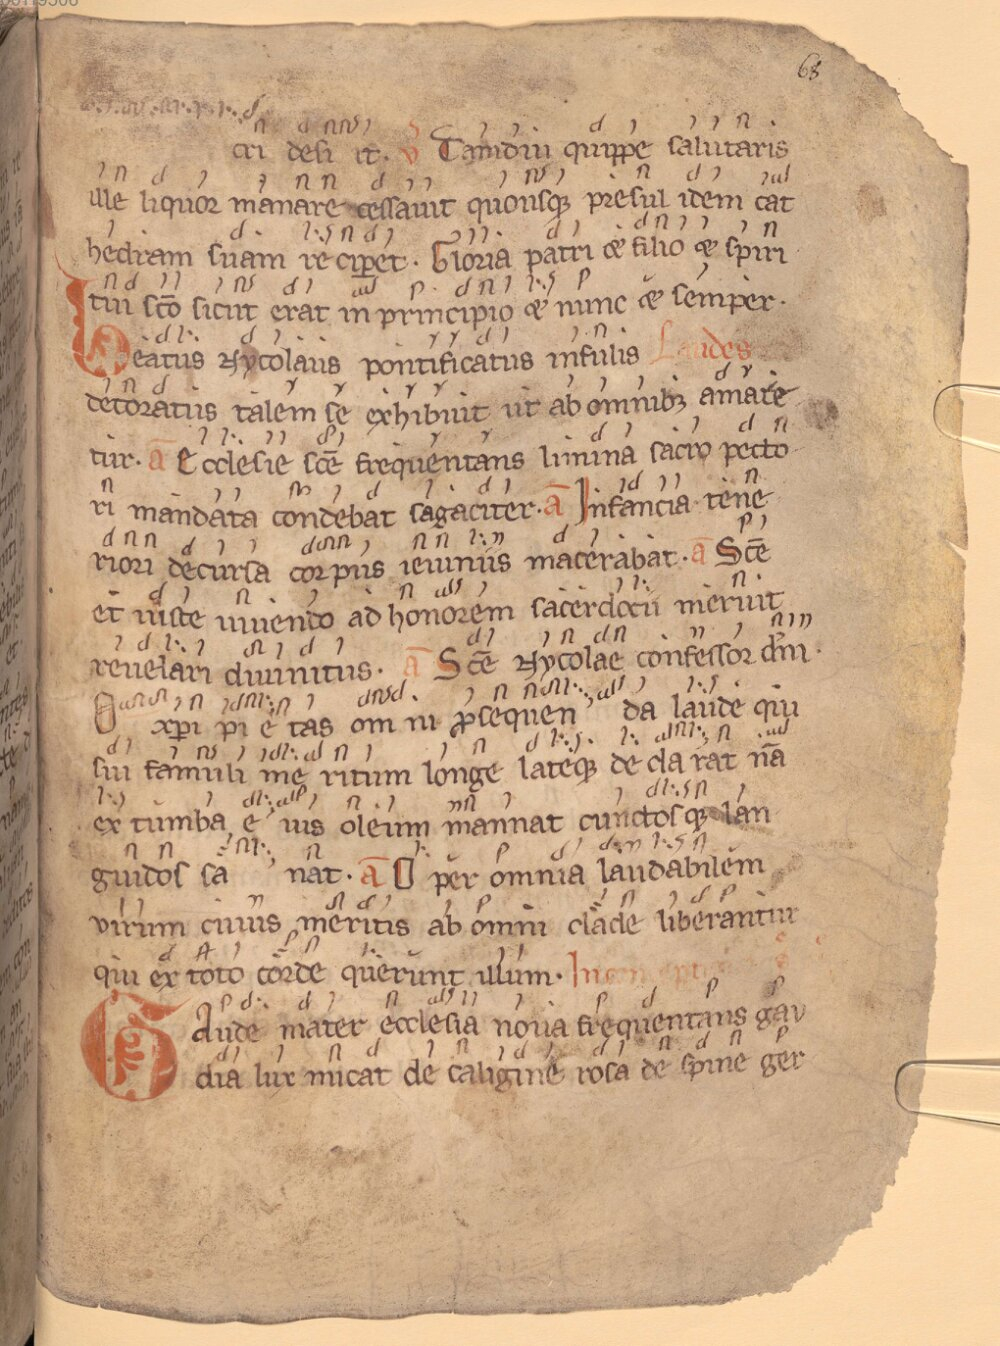 68
cri desi it. v Tamdiu quippe salutaris
ille liquor manare cessauit quousq; presul idem cat
hedram suam reciperet. Gloria patri & filio & spiri
tui sc̄o sicut erat in principio & nunc & semper.
Beatus Nycolaus pontificatus infulis Laudes
decoratus talem se exhibuit ut ab omnibꝫ amare
tur. ā Ecclesie sc̄e frequentans limina sacro pecto
ri mandata condebat sagaciter. ā Infancia tene
riori decursa corpus ieiuniis macerabat. ā Sc̄e
et iuste uiuendo ad honorem sacerdotii meruit
reuelari diuinitus. ā Sc̄e Nycolae confessor dn̄i.
O xp̄i pi e tas om ni ꝓsequen da laude qui
sui famuli me ritum longe lateq; de cla rat nā
ex tumba e ius oleum mannat cunctosq; lan
guidos sa nat. ā O per omnia laudabilem
uirum cuius meritis ab omni clade liberantur
qui ex toto corde querunt illum.
Gaude mater ecclesia noua frequentans gau
dia lux micat de caligine rosa de spine ger